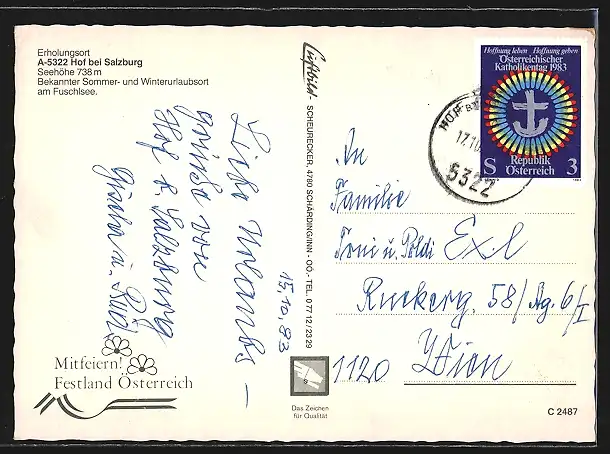 Erholungsort
A-5322 Hof bei Salzburg
Seehöhe 738 m
Bekannter Sommer- und Winterurlaubsort
am Fuschlsee.
Liebe Urlaubs-
grüße von
Hof b. Salzburg
u. Rudi
15.10.83
Mitfeiern!
Festland Österreich
Luftbild - SCHEURECKER, 4780 SCHÄRDING/INN - OÖ. - TEL. 0 77 12 / 23 29
Das Zeichen
für Qualität
Hoffnung leben Hoffnung geben
Österreichischer
Katholikentag 1983
Republik
Österreich
S 3
HOF
17.10
5322
An
Familie
Toni u. Poldi Exl
Ruckerg. 58/Ag. 6/I
1120 Wien
C 2487